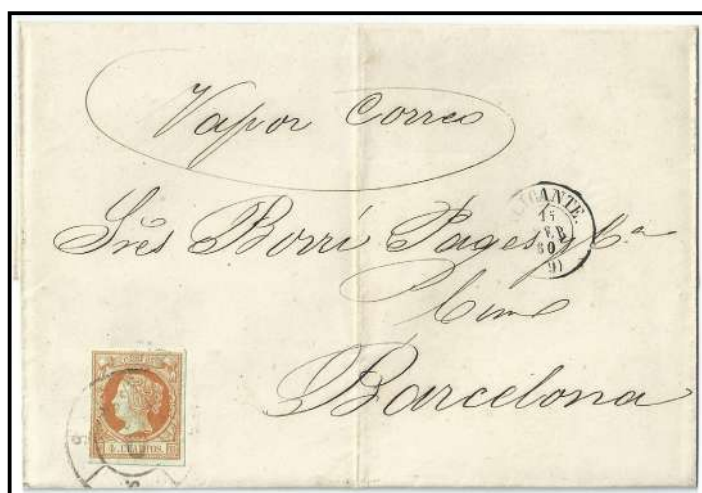 Vapor Correo
ALICANTE.
15
FEB
60
(9)
Sres Borri Pages y Ca
Barcelona
4 CUARTOS.